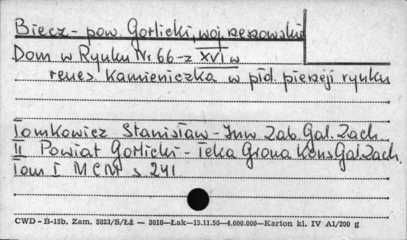 Biecz - pow. Gorlicki, woj. rzeszowskie
Dom w Rynku Nr 66 - z XVI w
renes. kamieniczka w płd. pierzeji rynku
Tomkowicz Stanisław - Inw. Zab. Gal. Zach.
II Powiat Gorlicki - Teka Grona Kons Gal. Zach.
Tom I MCM s 241
CWD - B-15b. Zam. 5823/S/ŁŻ — 3016—Łak—15.11.56—4.000.000—Karton kl. IV A1/200 g